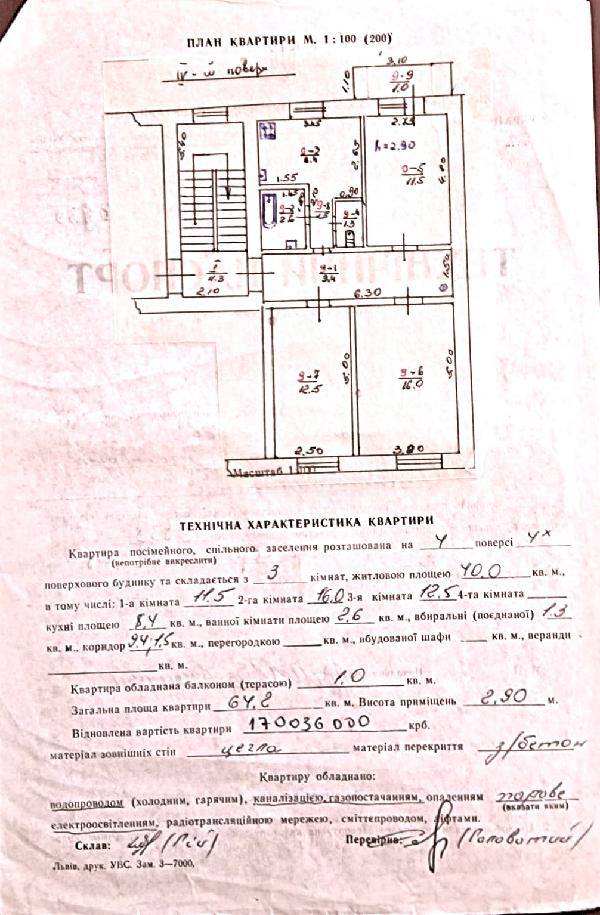 ПЛАН КВАРТИРИ М. 1 : 100 (200)
IV-й поверх
3.10
1.10
9-9
1.0
3.45
2.75
5.40
9-3
8.4
2.65
h=2.90
9-5
11.5
4.20
1.55
1.65
0.90
9-2
2.6
9-8
1.5
9-4
1.3
I
11.3
2.10
9-1
9.4
1.50
6.30
9-7
12.5
5.00
9-6
16.0
5.00
2.50
3.20
Масштаб 1:100
ТЕХНІЧНА ХАРАКТЕРИСТИКА КВАРТИРИ
Квартира посімейного, спільного заселення розташована на 4 поверсі 4х
(непотрібне викреслити)
поверхового будинку та складається з 3 кімнат, житловою площею 40.0 кв. м.,
в тому числі: 1-а кімната 11.5 2-га кімната 16.0 3-я кімната 12.5 4-та кімната
кухні площею 8,4 кв. м., ванної кімнати площею 2,6 кв. м., вбиральні (поєднаної) 1.3
кв. м., коридор 9.4, 1.5 кв. м., перегородкою кв. м., вбудованої шафи кв. м., веранди
кв. м.
Квартира обладнана балконом (терасою) 1.0 кв. м.
Загальна площа квартири 64,2 кв. м. Висота приміщень 2.90 м.
Відновлена вартість квартири 170036 000 крб.
матеріал зовнішніх стін цегла матеріал перекриття з/бетон
Квартиру обладнано:
водопроводом (холодним, гарячим), каналізацією, газопостачанням, опаленням парове
(вказати яким)
електроосвітленням, радіотрансляційною мережею, сміттєпроводом, ліфтами.
Склав: Перевірив: (Головатий)
Львів, друк. УВС. Зам. 3—7000.